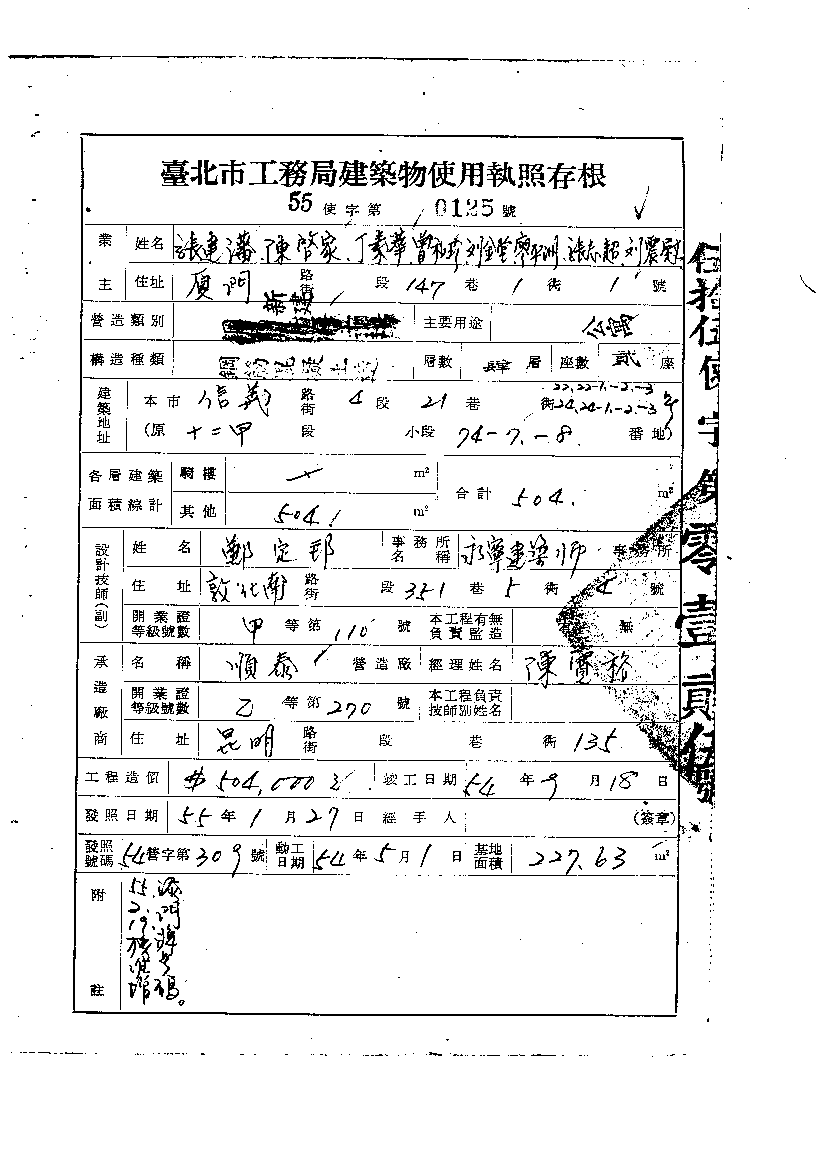 臺北市工務局建築物使用執照存根
55 使字第 0125 號
業主 姓名 張建藩、陳啓家、丁素華、曾 刘金 廖 洲、張志超、刘震
住址 厦門 路街 段 147 巷 1 衖 1 號
營造類別 新建 主要用途 公寓
構造種類 鋼筋混凝土造 層數 肆 層 座數 貳 座
建築地址 本市 信義 路街 4 段 21 巷 衖 22,22-1,-2,-3 24,24-1,-2,-3 号
(原 十二甲 段 小段 74-7,-8 番地)
各層建築面積總計 騎樓 m² 合計 504. m²
其他 504. m²
設計技師(副) 姓名 鄭定邦 事務所名稱 永寧建築師事務所
住址 敦化南 路街 段 351 巷 5 衖 4 號
開業證等級號數 甲 等第 110 號 本工程有無負責監造 無
承造廠商 名稱 順泰 營造廠 經理姓名 陳寶裕
開業證等級號數 乙 等第 270 號 本工程負責技師別姓名
住址 昆明 路街 段 巷 衖 135 號
工程造價 $504,000 竣工日期 54 年 9 月 18 日
發照日期 55 年 1 月 27 日 經手人 (簽章)
發照號碼 54 營字第 309 號 動工日期 54 年 5 月 1 日 基地面積 227.63 m²
附註 55.2.19. 核准增添門牌号碼。
伍拾伍使字第零壹貳伍號